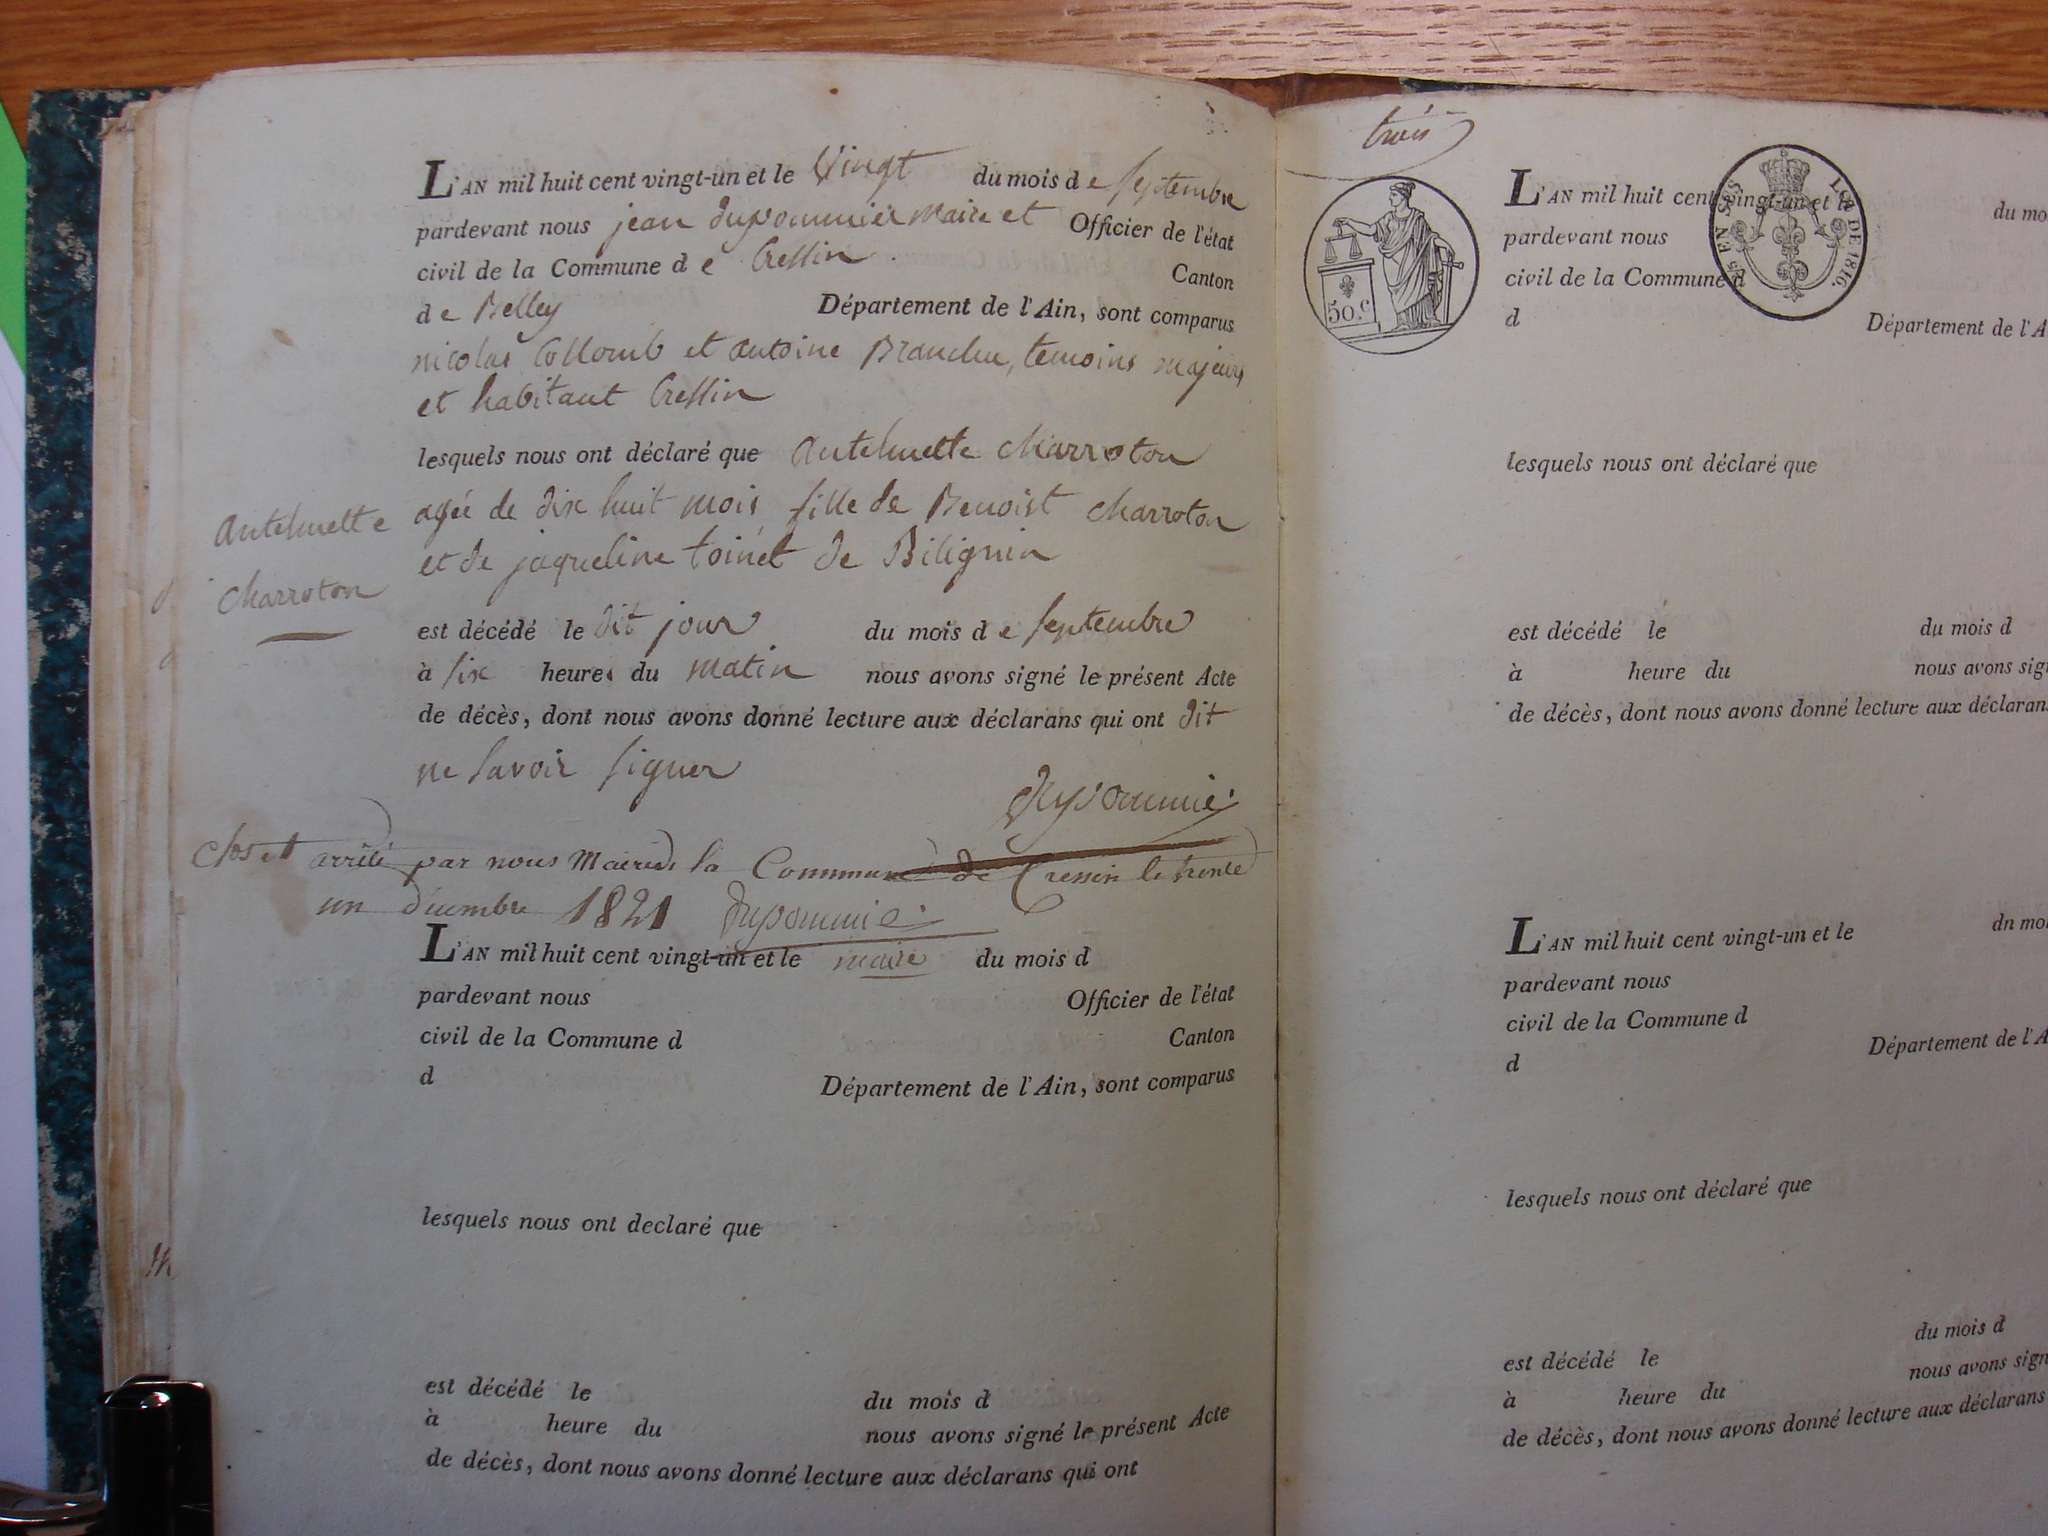 L'AN mil huit cent vingt-un et le Vingt du mois de septembre
pardevant nous jean dupommier maire et Officier de l'état
civil de la Commune de Cressin Canton
de Belley Département de l'Ain, sont comparus
nicolas Collomb et antoine Branche, temoins majeurs
et habitant Cressin
lesquels nous ont déclaré que Anthelmette Charroton
agée de dix huit mois fille de Benoist Charroton
et de jaqueline toinet de Bilignin
Anthelmette
Charroton
est décédé le dit jour du mois de septembre
à six heures du matin nous avons signé le présent Acte
de décès, dont nous avons donné lecture aux déclarans qui ont dit
ne savoir signer
Dupommié
Clos et arrêté par nous Maire de la Commune de Cressin le trente
un décembre 1821 Dupommié
maire
L'AN mil huit cent vingt-un et le du mois d
pardevant nous Officier de l'état
civil de la Commune d Canton
d Département de l'Ain, sont comparus
lesquels nous ont declaré que
est décédé le du mois d
à heure du nous avons signé le présent Acte
de décès, dont nous avons donné lecture aux déclarans qui ont
trois
50.C
LOI DE 1816.
L'AN mil huit cent vingt-un et le du mo
pardevant nous
civil de la Commune d
d Département de l'A
lesquels nous ont déclaré que
est décédé le du mois d
à heure du nous avons sig
de décès, dont nous avons donné lecture aux déclaran
L'AN mil huit cent vingt-un et le dn mo
pardevant nous
civil de la Commune d
d Département de l'A
lesquels nous ont déclaré que
est décédé le du mois d
à heure du nous avons sign
de décès, dont nous avons donné lecture aux déclarans